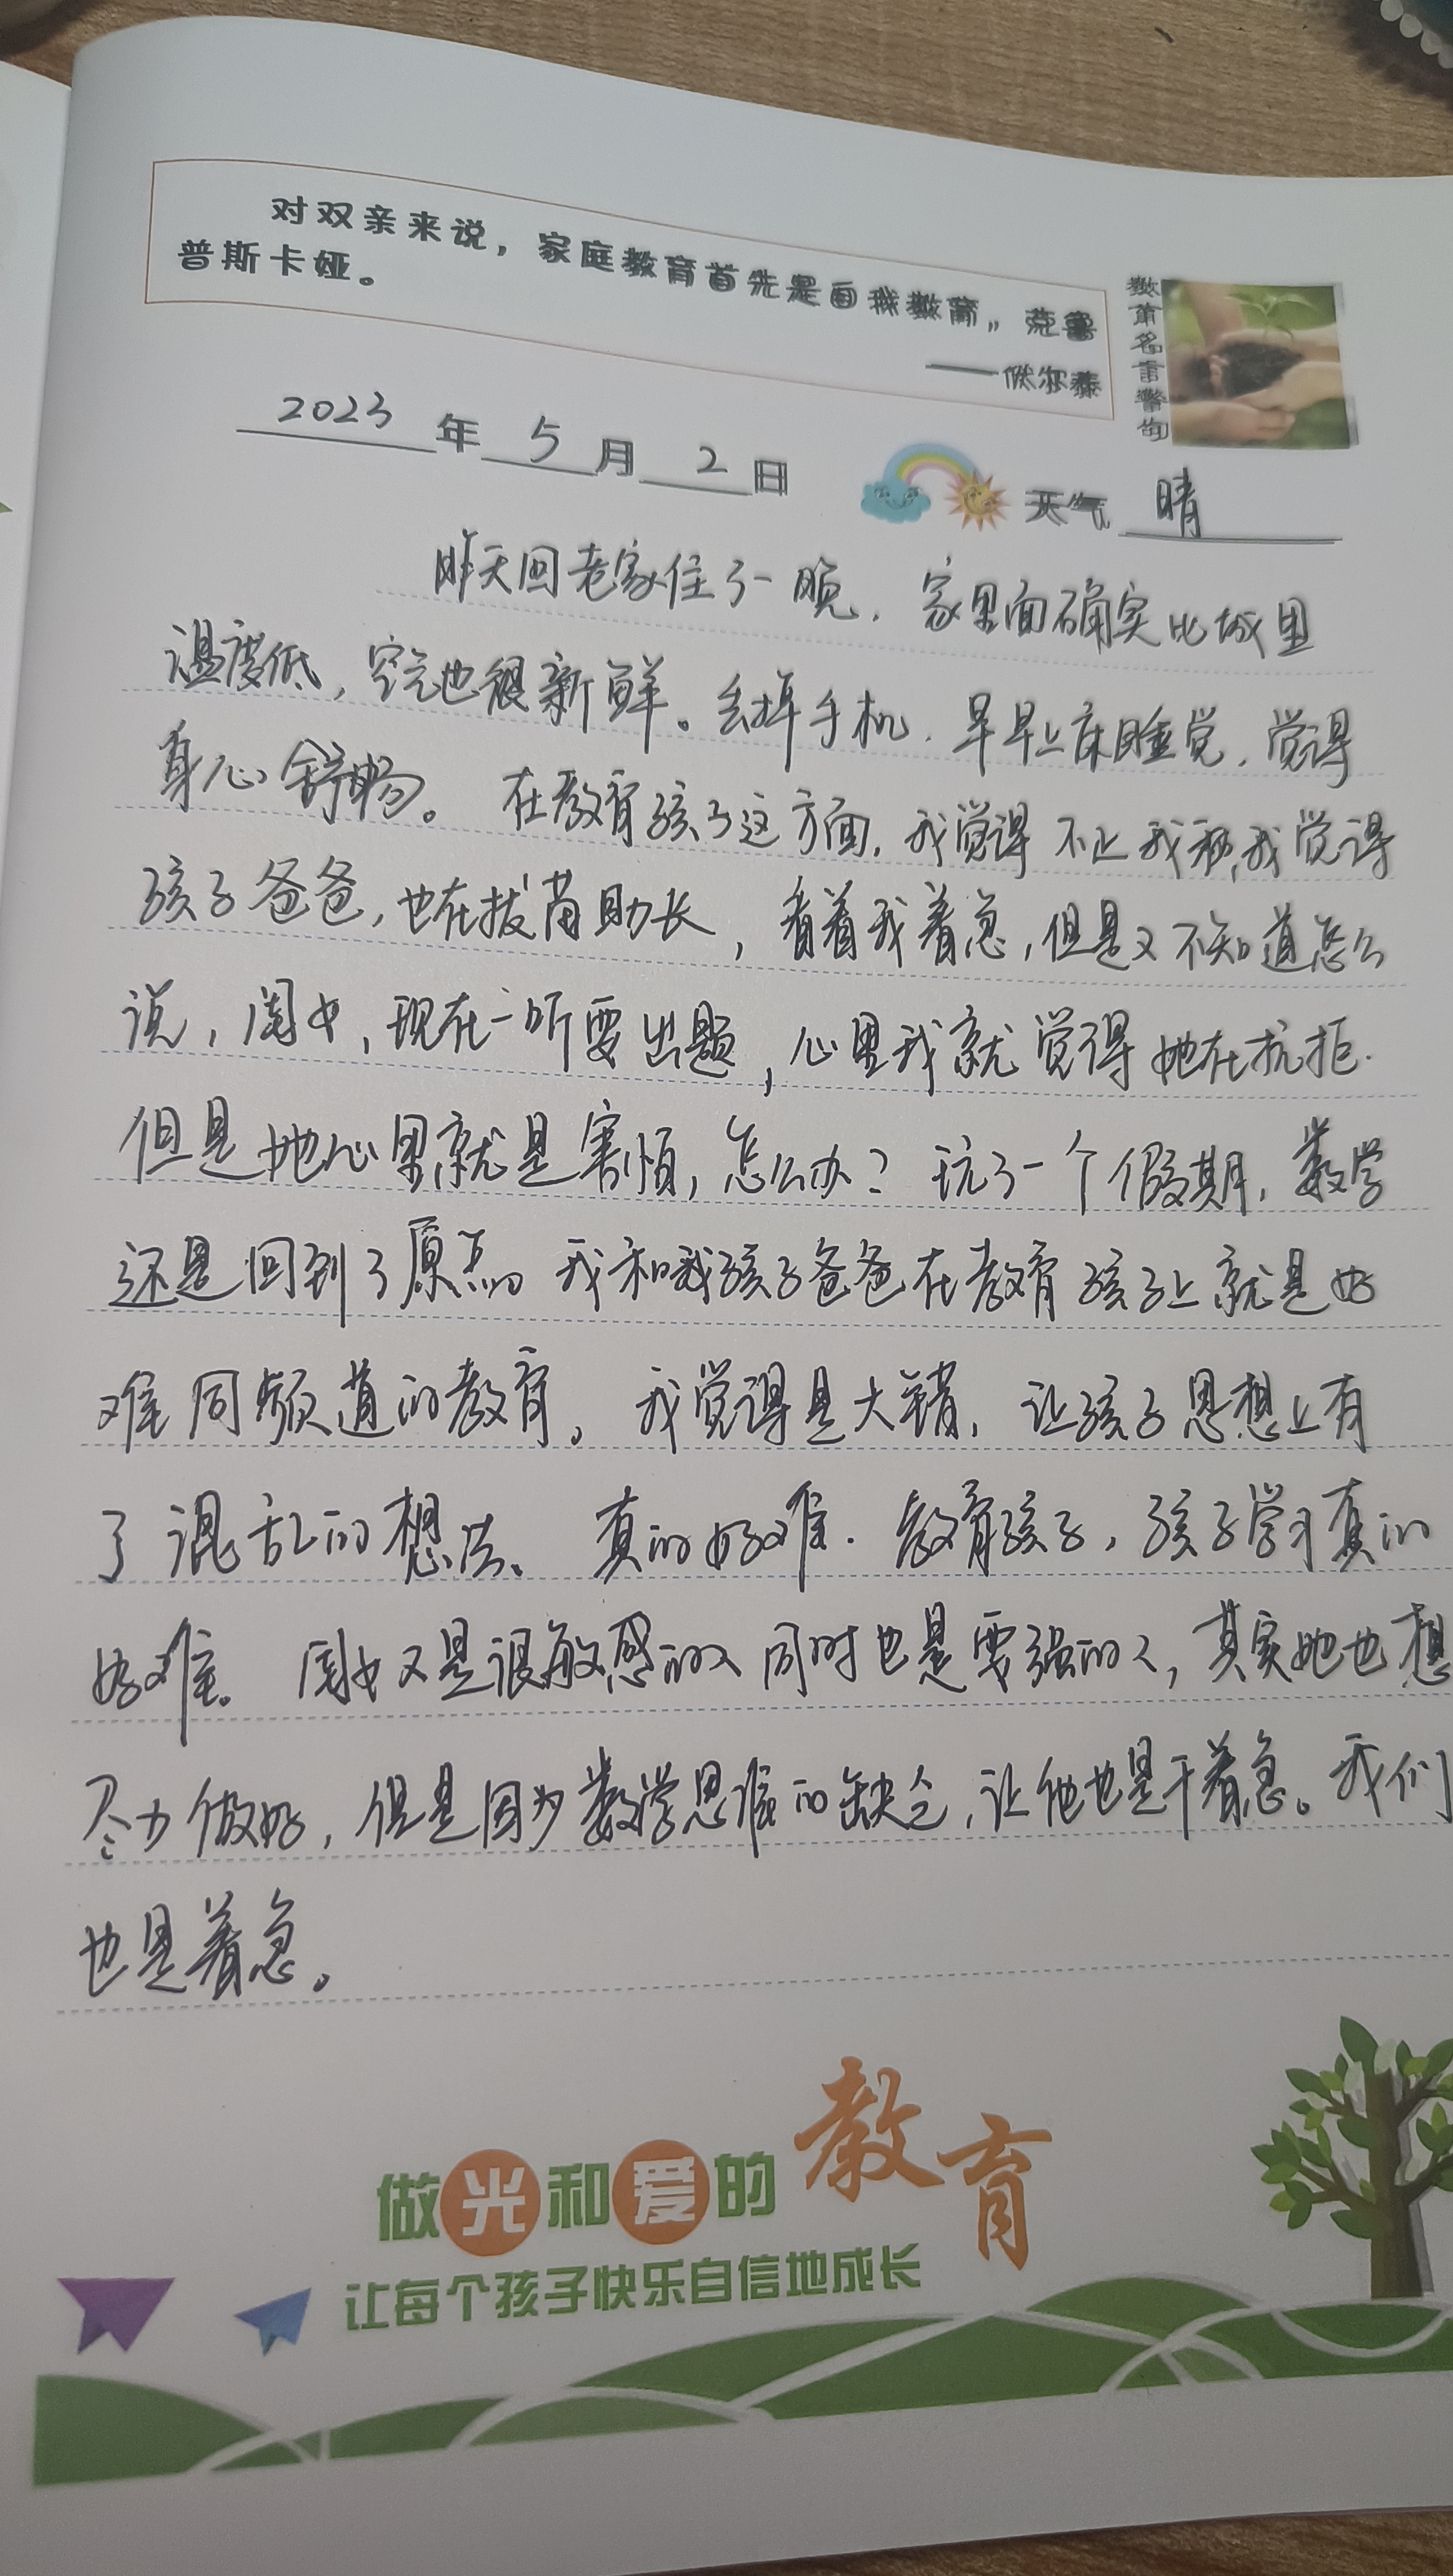 对双亲来说，家庭教育首先是自我教育。克鲁
普斯卡娅。
教育名言警句
2023年5月2日
天气 晴
昨天回老家住了一晚，家里面确实比城里
温度低，空气也很新鲜。丢掉手机，早早上床睡觉，觉得
身心舒畅。在教育孩子这方面，我觉得不止我和，我觉得
孩子爸爸，也在拔苗助长，看着我着急，但是又不知道怎么
说，闺女，现在一听要出题，心里我就觉得她在抗拒.
但是她心里就是害怕，怎么办？玩了一个假期，数学
还是回到了原点。我和我孩子爸爸在教育孩子上就是好
难同频道的教育。我觉得是大错，让孩子思想上有
了混乱的想法。真的好难. 教育孩子，孩子学习真的
好难。闺女又是很敏感的人同时也是要强的人，其实她也想
尽力做好，但是因为数学思维的缺乏，让他也是干着急。我们
也是着急。
做光和爱的教育
让每个孩子快乐自信地成长